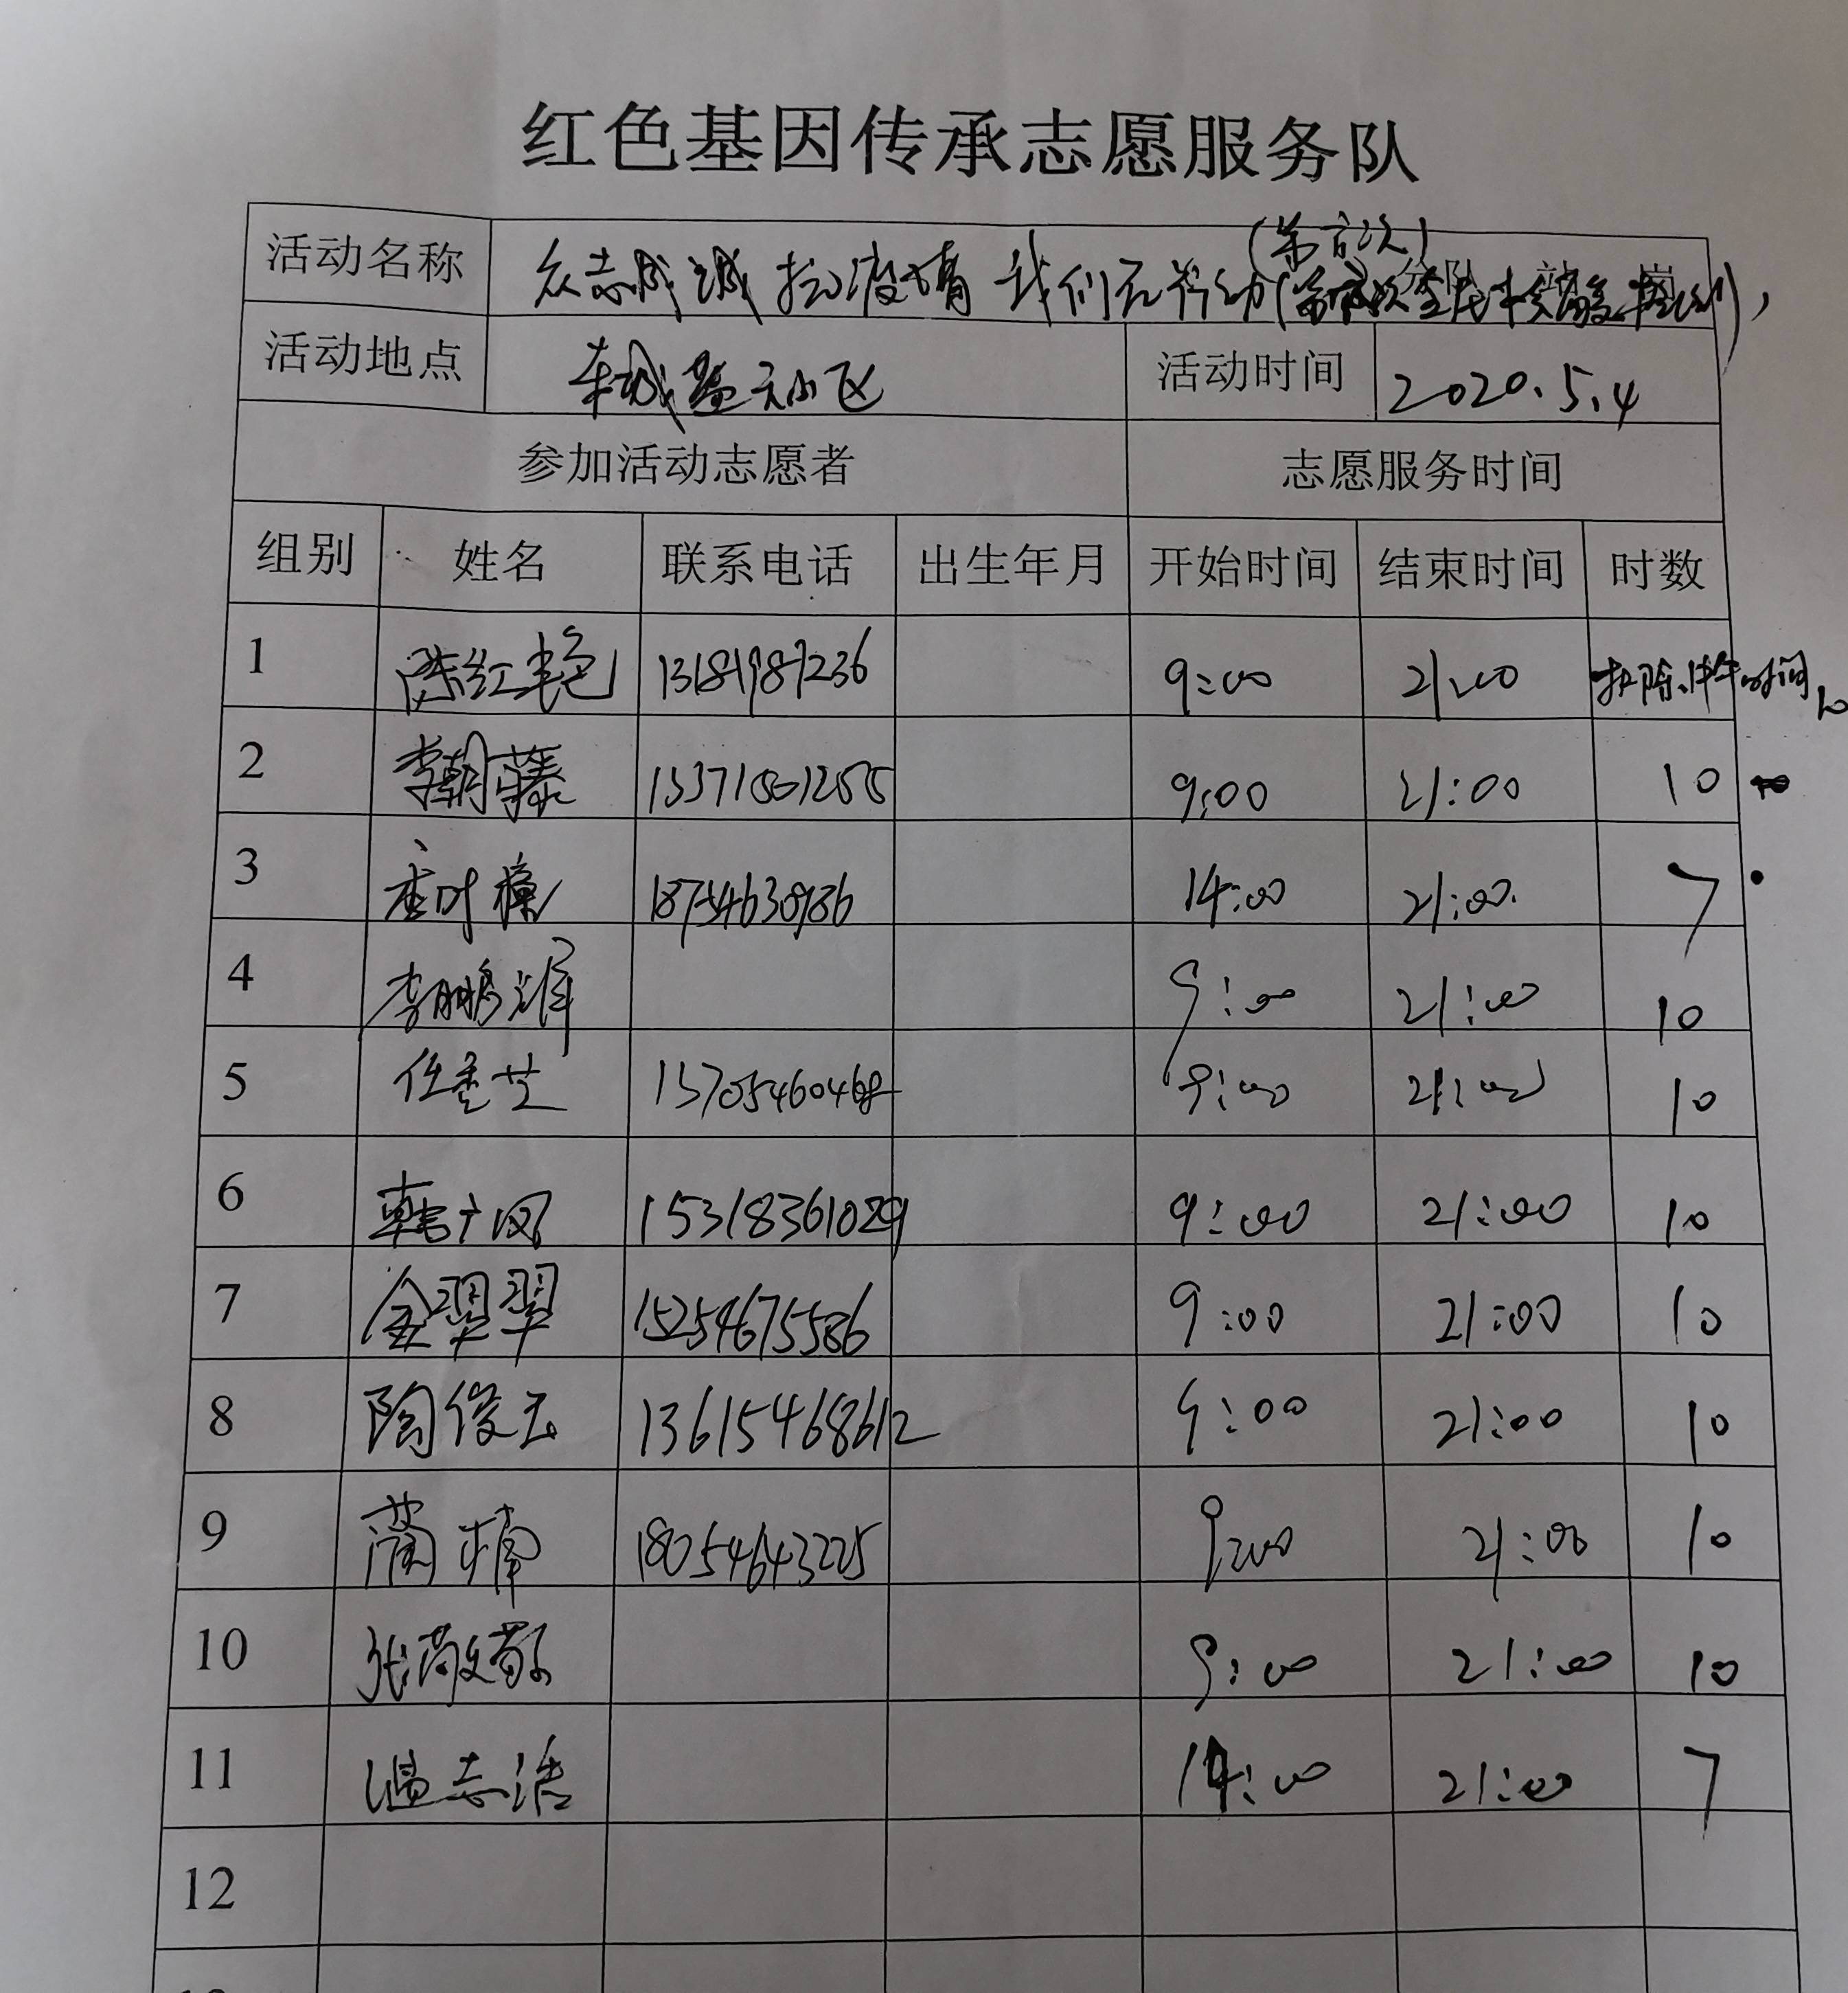 红色基因传承志愿服务队
活动名称 众志成城 抗疫情 我们在行动
活动地点 东城 小区 活动时间 2020.5.4
参加活动志愿者 志愿服务时间
组别 姓名 联系电话 出生年月 开始时间 结束时间 时数
1 陈红艳 13181987236 9:00 21:00 扣除 时间 10
2 李朝藤 9:00 21:00 10
3 18754630986 14:00 21:00. 7
4 李鹏辉 9:00 21:00 10
5 任重芝 9:00 21:00 10
6 韩广凤 15318361029 9:00 21:00 10
7 金翠翠 15254675586 9:00 21:00 10
8 陶俊玉 13615468612 9:00 21:00 10
9 蔺楠 18054643225 9:00 21:00 10
10 张 9:00 21:00 10
11 温志浩 14:00 21:00 7
12